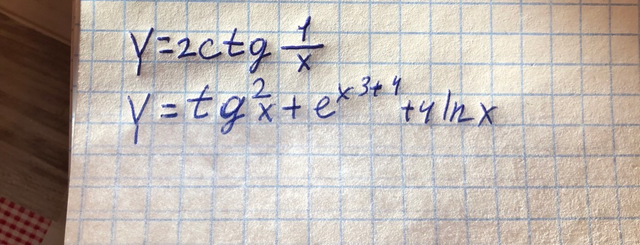 y=2ctg 1/x
y=tg²x+e^(x³+4)+4lnx